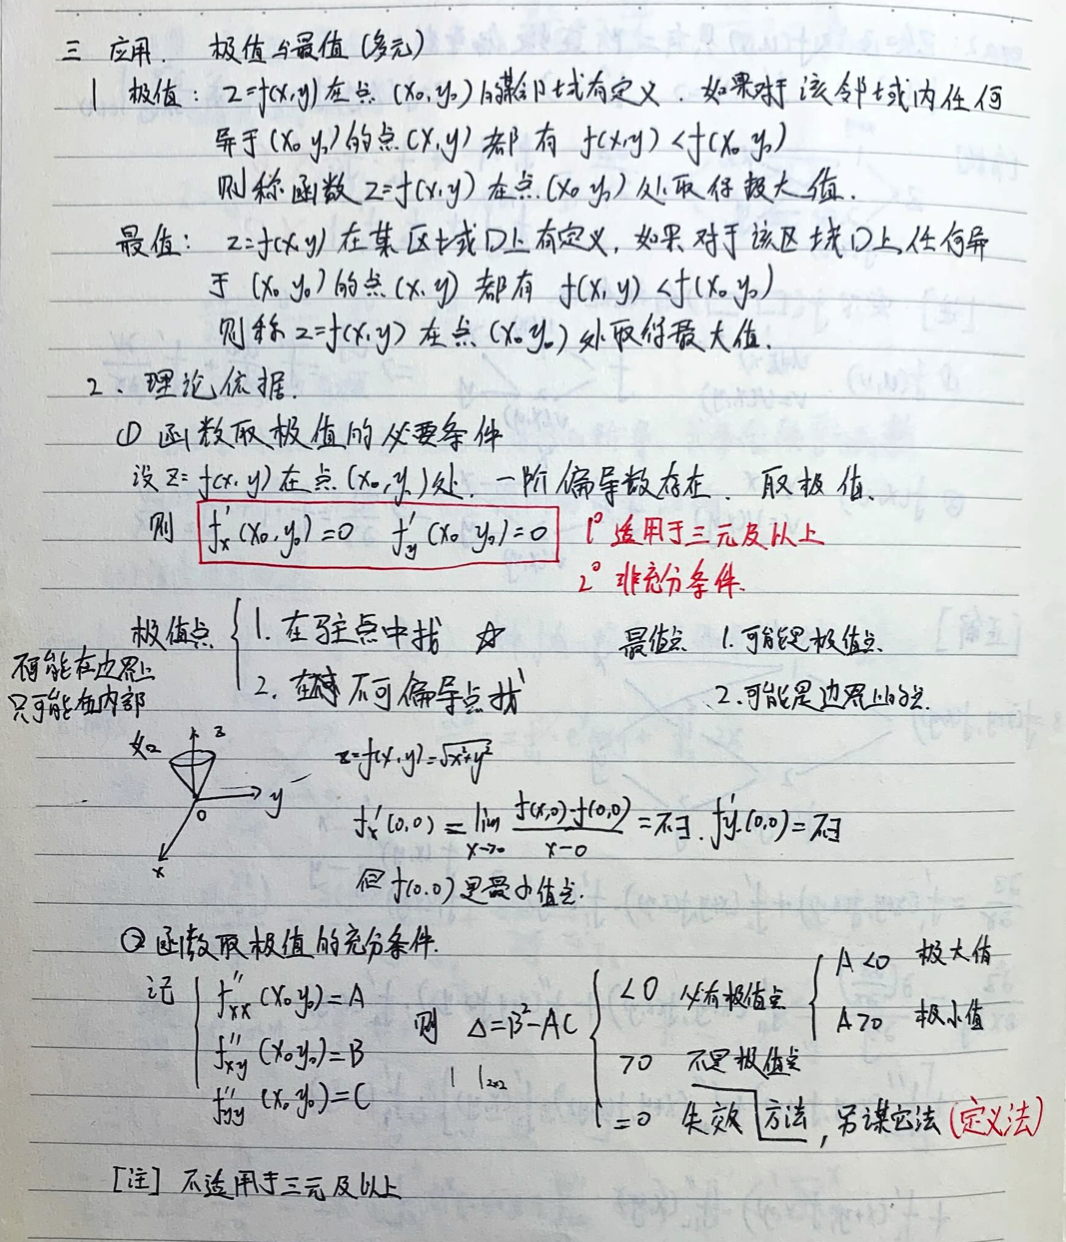 三 应用. 极值与最值(多元)
1 极值: z=f(x,y)在点(x₀,y₀)的某邻域有定义. 如果对于该邻域内任何
异于(x₀ y₀)的点(x,y)都有 f(x,y)<f(x₀ y₀)
则称函数z=f(x,y)在点(x₀ y₀)处取得极大值.
最值: z=f(x,y)在某区域D上有定义, 如果对于该区域D上任何异
于(x₀ y₀)的点(x,y)都有 f(x,y)<f(x₀ y₀)
则称z=f(x,y)在点(x₀ y₀)处取得最大值.
2、理论依据.
① 函数取极值的必要条件
设z=f(x,y)在点(x₀,y₀)处. 一阶偏导数存在、取极值、
则 f'ₓ(x₀,y₀)=0 f'ᵧ(x₀ y₀)=0 1° 适用于三元及以上
2° 非充分条件.
极值点 { 1. 在驻点中找 ☆ 最值点 1. 可能是极值点.
2. 在 不可偏导点找 2. 可能是边界上的点.
不可能在边界上
只可能在内部
如 z y x 0
z=f(x,y)=√x²+y²
f'ₓ(0,0)=lim x→0 f(x,0)-f(0,0) / x-0 =不∃. f'y(0,0)=不∃
但f(0.0)是最小值点.
② 函数取极值的充分条件.
记 { f''xx(x₀ y₀)=A
f''xy(x₀ y₀)=B
f''yy(x₀ y₀)=C
则 Δ=B²-AC { <0 必有极值点 { A<0 极大值
A>0 极小值
>0 不是极值点
=0 失效 方法, 另谋它法(定义法)
| |₂ₓ₂
[注] 不适用于三元及以上